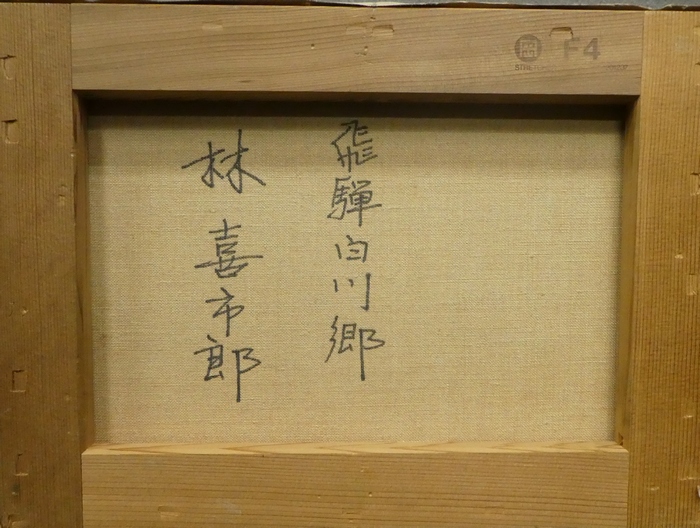 飛騨白川郷
林 喜市郎
F4